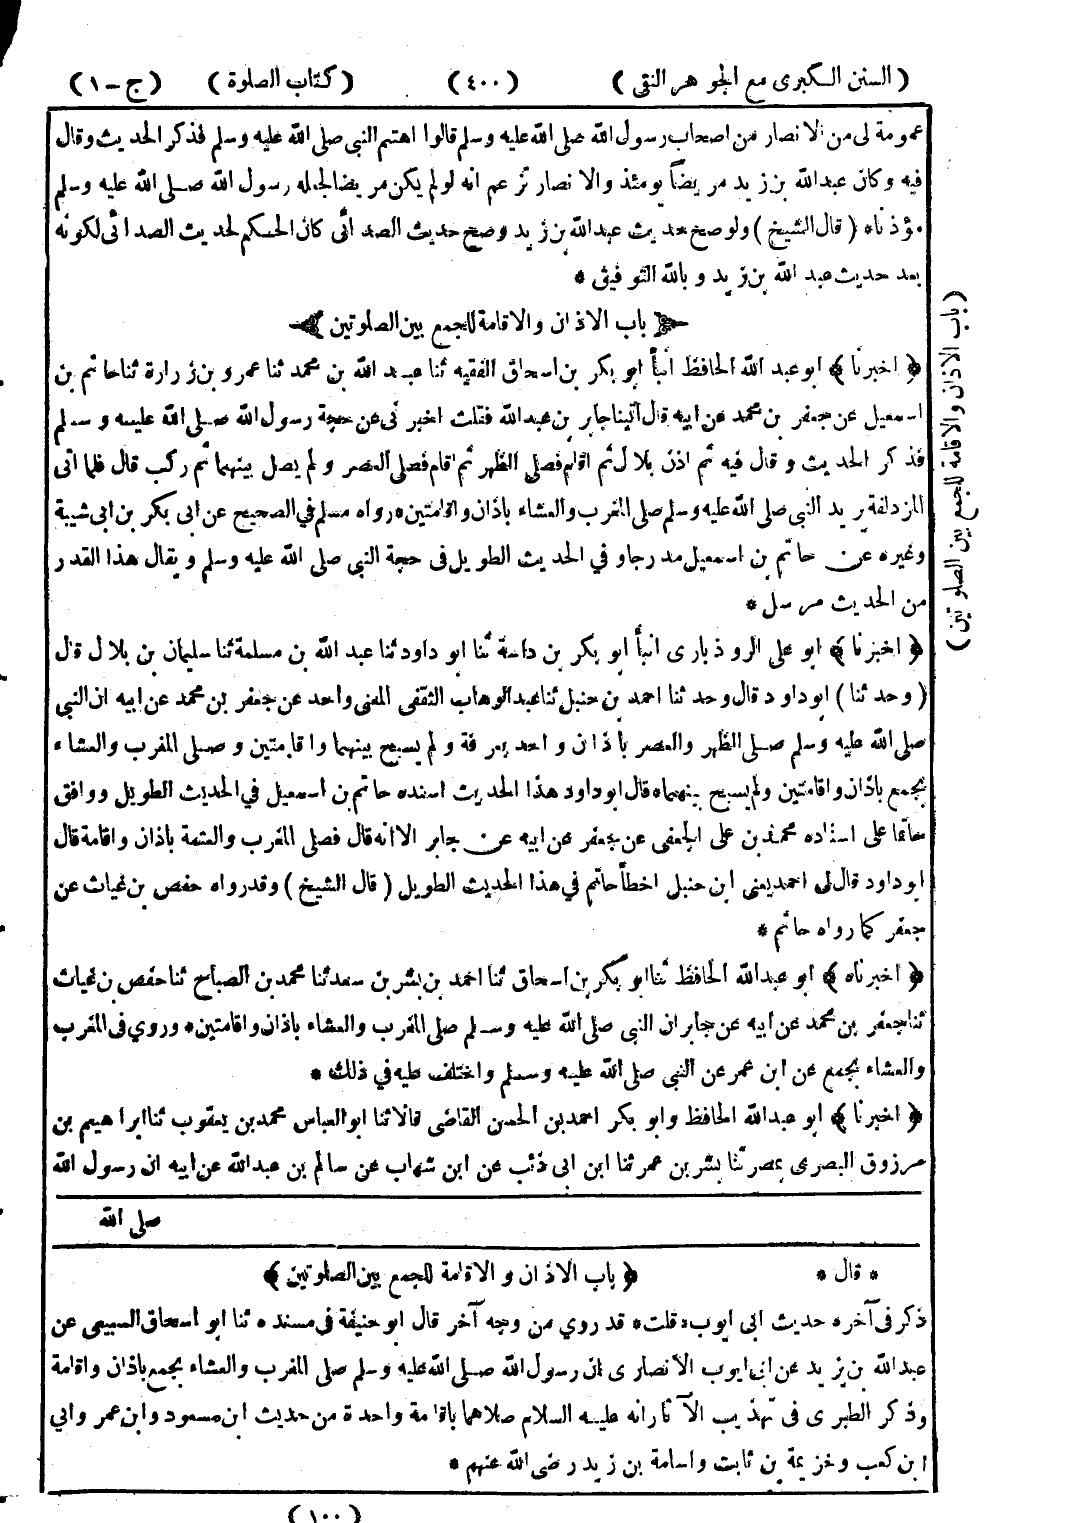 ( السنن الكبرى مع الجوهر النقى ) (٤٠٠) ( كتاب الصلوة ) ( ج - ١ )
عمومة لى من الانصار من اصحاب رسول الله صلى الله عليه وسلم قالوا اهتم النبى صلى الله عليه وسلم فذكر الحديث وقال
فيه وكان عبدالله بن زيد مريضاً يومئذ والانصار تزعم انه لو لم يكن مريضا لجعله رسول الله صلى الله عليه وسلم
مؤذناه ( قال الشيخ ) ولو صح حديث عبدالله بن زيد وصح حديث الصدائى كان الحكم لحديث الصدائى لكونه
بعد حديث عبد الله بن زيد و بالله التوفيق *
باب الاذان والاقامة للجمع بين الصلوتين
﴿ اخبرنا ﴾ ابو عبد الله الحافظ انبأ ابو بكر بن اسحاق الفقيه ثنا عبد الله بن محمد ثنا عمرو بن زرارة ثنا حاتم بن
اسمعيل عن جعفر بن محمد عن ابيه قال اتينا جابر بن عبدالله فقلت اخبرنى عن حجة رسول الله صلى الله عليه وسلم
فذكر الحديث و قال فيه ثم اذن بلال ثم اقام فصلى الظهر ثم اقام فصلى العصر و لم يصل بينهما ثم ركب قال فلما اتى
المزدلفة يريد النبى صلى الله عليه وسلم صلى المغرب والعشاء باذان واقامتين * رواه مسلم في الصحيح عن ابى بكر بن ابى شيبة
وغيره عن حاتم بن اسمعيل مدرجا و في الحديث الطويل فى حجة النبى صلى الله عليه وسلم و يقال هذا القدر
من الحديث مرسل *
﴿ اخبرنا ﴾ ابو على الروذبارى انبأ ابو بكر بن داسة ثنا ابو داود ثنا عبد الله بن مسلمة ثنا سليمان بن بلال قال
( وحدثنا ) ابو داود قال وحدثنا احمد بن حنبل ثنا عبدالوهاب الثقفى المعنى واحد عن جعفر بن محمد عن ابيه ان النبى
صلى الله عليه وسلم صلى الظهر والعصر باذان واحد بعرفة ولم يسبح بينهما واقامتين وصلى المغرب والعشاء
بجمع باذان واقامتين ولم يسبح بينهما * قال ابو داود هذا الحديث اسنده حاتم بن اسمعيل في الحديث الطويل ووافق
حاتما على اسناده محمد بن على الجعفى عن جعفر عن ابيه عن جابر الا انه قال فصلى المغرب والعتمة باذان واقامة قال
ابو داود قال لى احمد يعنى ابن حنبل اخطأ حاتم في هذا الحديث الطويل ( قال الشيخ ) وقد رواه حفص بن غياث عن
جعفر كما رواه حاتم *
﴿ اخبرناه ﴾ ابو عبدالله الحافظ ثنا ابو بكر بن اسحاق ثنا احمد بن بشر بن سعد ثنا محمد بن الصباح ثنا حفص بن غياث
ثنا جعفر بن محمد عن ابيه عن جابر ان النبى صلى الله عليه وسلم صلى المغرب والعشاء باذان واقامتين * وروي فى المغرب
والعشاء بجمع عن ابن عمر عن النبى صلى الله عليه وسلم واختلف عليه في ذلك *
﴿ اخبرنا ﴾ ابو عبدالله الحافظ وابو بكر احمد بن الحسن القاضى قالا ثنا ابوالعباس محمد بن يعقوب ثنا ابراهيم بن
مرزوق البصرى بمصر ثنا بشر بن عمر ثنا ابن ابى ذئب عن ابن شهاب عن سالم بن عبدالله عن ابيه ان رسول الله
صلى الله
* قال * ﴿ باب الاذان و الاقامة للجمع بين الصلوتين ﴾
ذكر فى آخره حديث ابى ايوب * قلت * قد روي من وجه آخر قال ابو حنيفة فى مسنده ثنا ابو اسحاق السبيعى عن
عبدالله بن يزيد عن ابى ايوب الانصارى ان رسول الله صلى الله عليه وسلم صلى المغرب والعشاء بجمع باذان واقامة
وذكر الطبرى فى تهذيب الآثار انه عليه السلام صلاهما باقامة واحدة من حديث ابن مسعود وابن عمر وابي
ابن كعب وخزيمة بن ثابت واسامة بن زيد رضى الله عنهم *
(١٠٠)
( باب الاذان والاقامة للجمع بين الصلوتين )